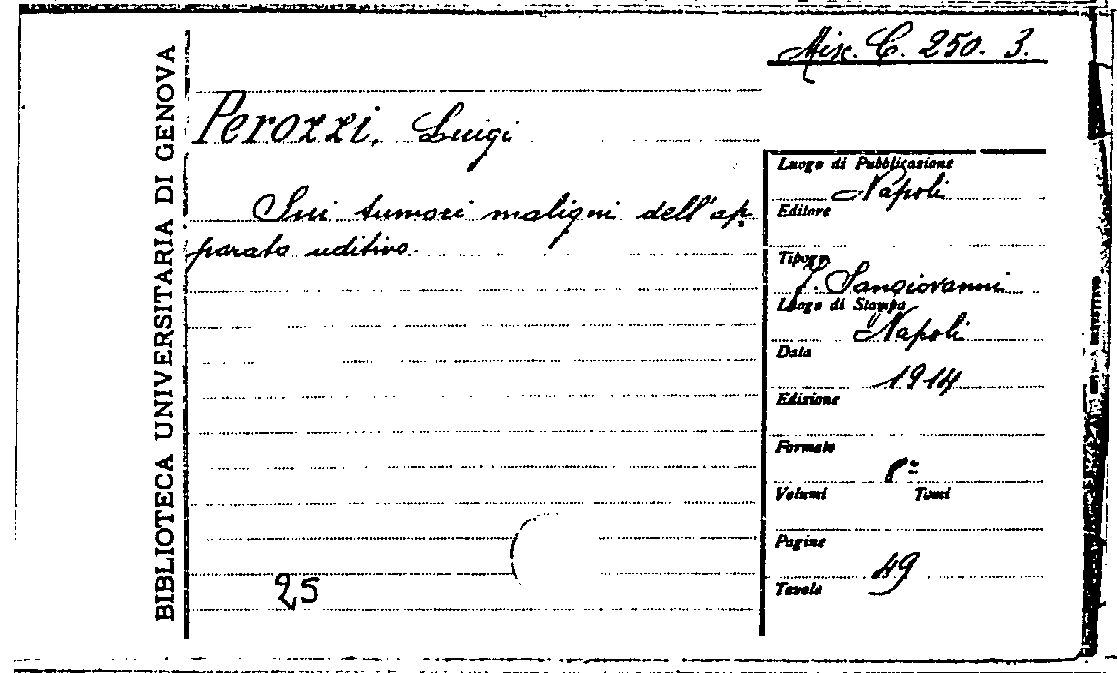 Misc. C. 250. 3.
BIBLIOTECA UNIVERSITARIA DI GENOVA
Perozzi, Luigi
Sui tumori maligni dell'ap-
parato uditivo.
25
Luogo di Pubblicazione
Napoli
Editore
Tipogr.
S. Sangiovanni
Luogo di Stampa
Napoli
Data
1914
Edizione
Formato
8º
Volumi Tomi
Pagine
49
Tavole